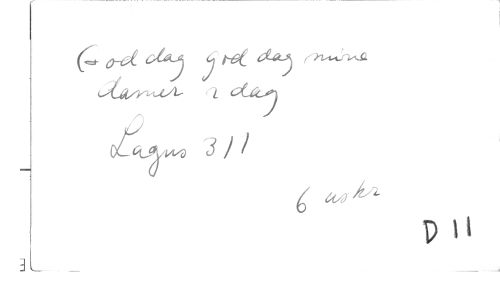 God dag god dag mine
damer i dag
Lagus 311
6 uskr
D 11